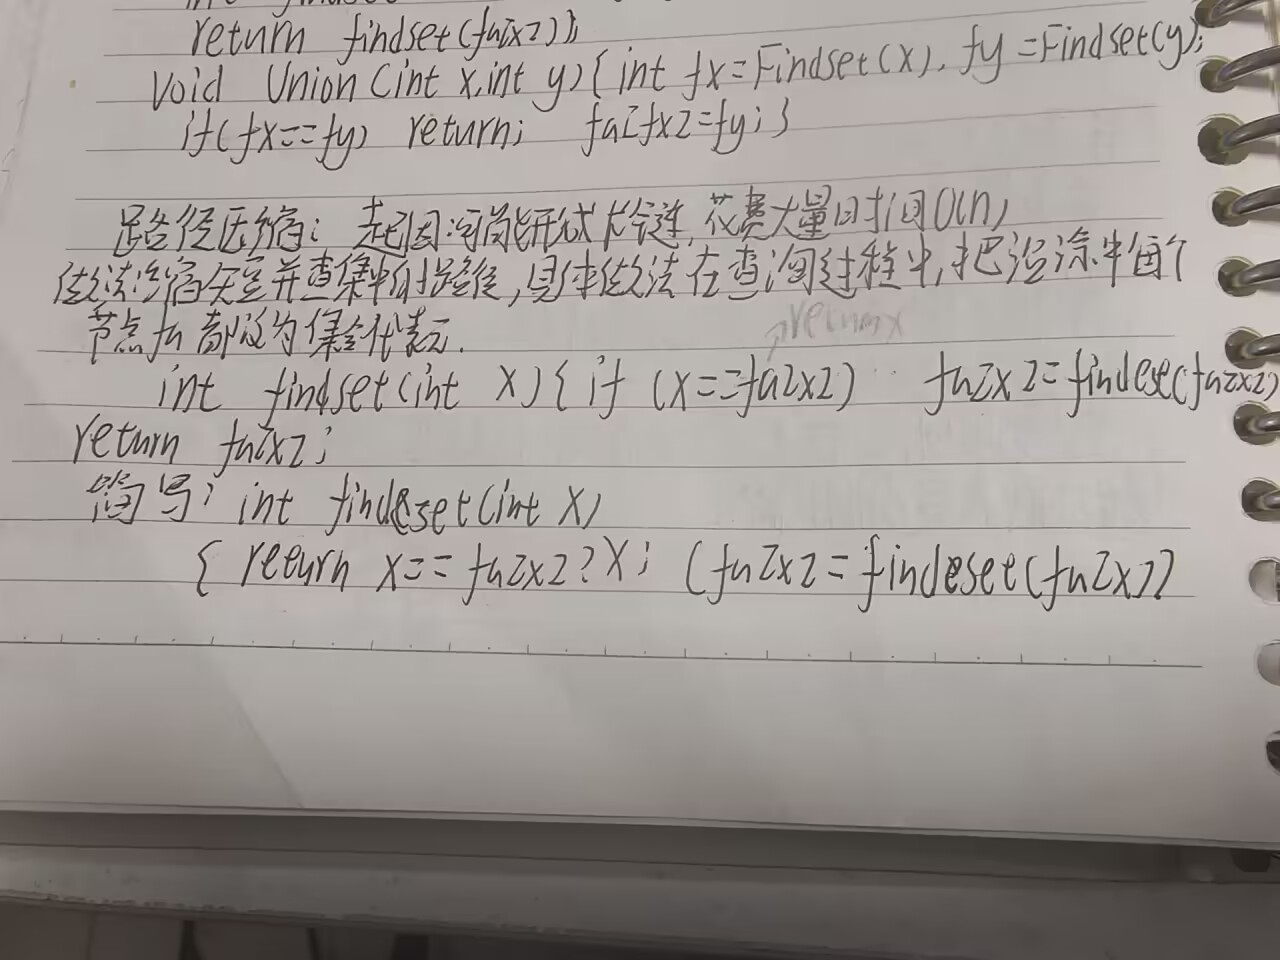 return findset(fa[x]);
void Union(int x,int y){int fx=Findset(x),fy=Findset(y);
if(fx==fy) return; fa[fx]=fy;}
路径压缩：起因:可能形成长链,花费大量时间O(n)
做法:缩短并查集中的路径,具体做法在查询过程中,把沿途中每个
节点fa都设为集合代表元.
return x
int findset(int x){if (x==fa[x]) fa[x]=findeset(fa[x])
return fa[x];
简写: int findeset(int x)
{ return x==fa[x]?x; (fa[x]=findeset(fa[x])